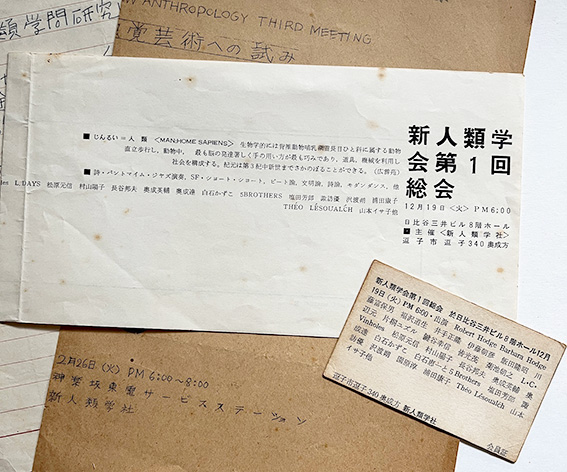 N ANTHROPOLOGY THIRD MEETING
覚芸術への試み
類学問研究
新人類学
会第1回
総会
12月19日<火>PM6:00
日比谷三井ビル8階ホール
■主催<新人類学社>
逗子市逗子340奥成方
■じんるい=人類<MAN:HOME SAPIENS> 生物学的には脊椎動物哺乳綱霊長目ひと科に属する動物
直立歩行し、動物中、最も脳の発達著しく手の用い方が最も巧みであり、道具、機械を利用し
社会を構成する。紀元は第3紀中新世までさかのぼることができる。(広辞苑)
■詩・パントマイム・ジャズ演奏、SF・ショート・ショート、ビート論、文明論、詩論、モダンダンス、他
les L.DAYS 松原元信 村山陽子 長谷邦夫 奥成英輔 奥成達 白石かずこ 5BROTHERS 塩田芳郎 諏訪優 沢渡朔 浦田康子
THÉO LÉSOUALCH 山本イサ子他
新人類学会第1回総会 於日比谷三井ビル8階ホール12月
19日(火)PM 6:00・出演 Robert Hodge Barbara Hodge
藤富保男 稲沢逍生 井手正隆 伊藤朝彦 飯田隆昭 川
辺元 片桐ユズル 鍵谷幸信 菊池功之 L.C.
Vinholes 松原元信 村山陽子 長谷邦夫 奥成英輔 奥
成達 白石かずこ 白石かずこと5 Brothers 塩田芳郎 諏
訪優 沢渡朔 園田淳 浦田康子 Théo Lésoualch 山本
イサ子他
逗子市逗子340奥成方 新人類学社
会員証
2月26日(火)PM 6:00~8:00
神楽坂東電サービスステーション
新人類学社